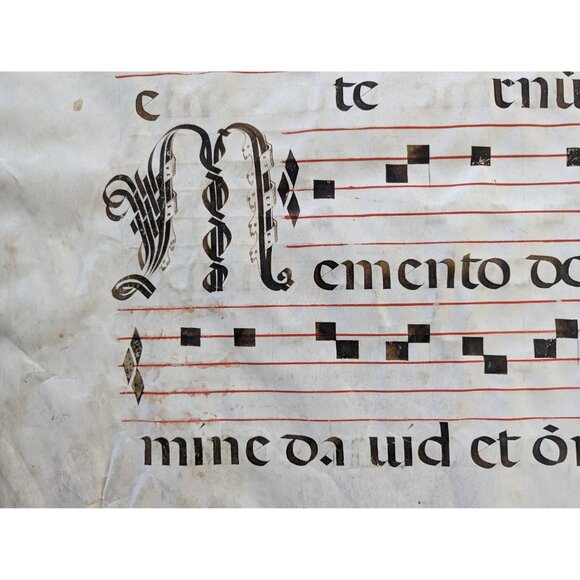 e te rnū
Memento do
mine da uid et ōm